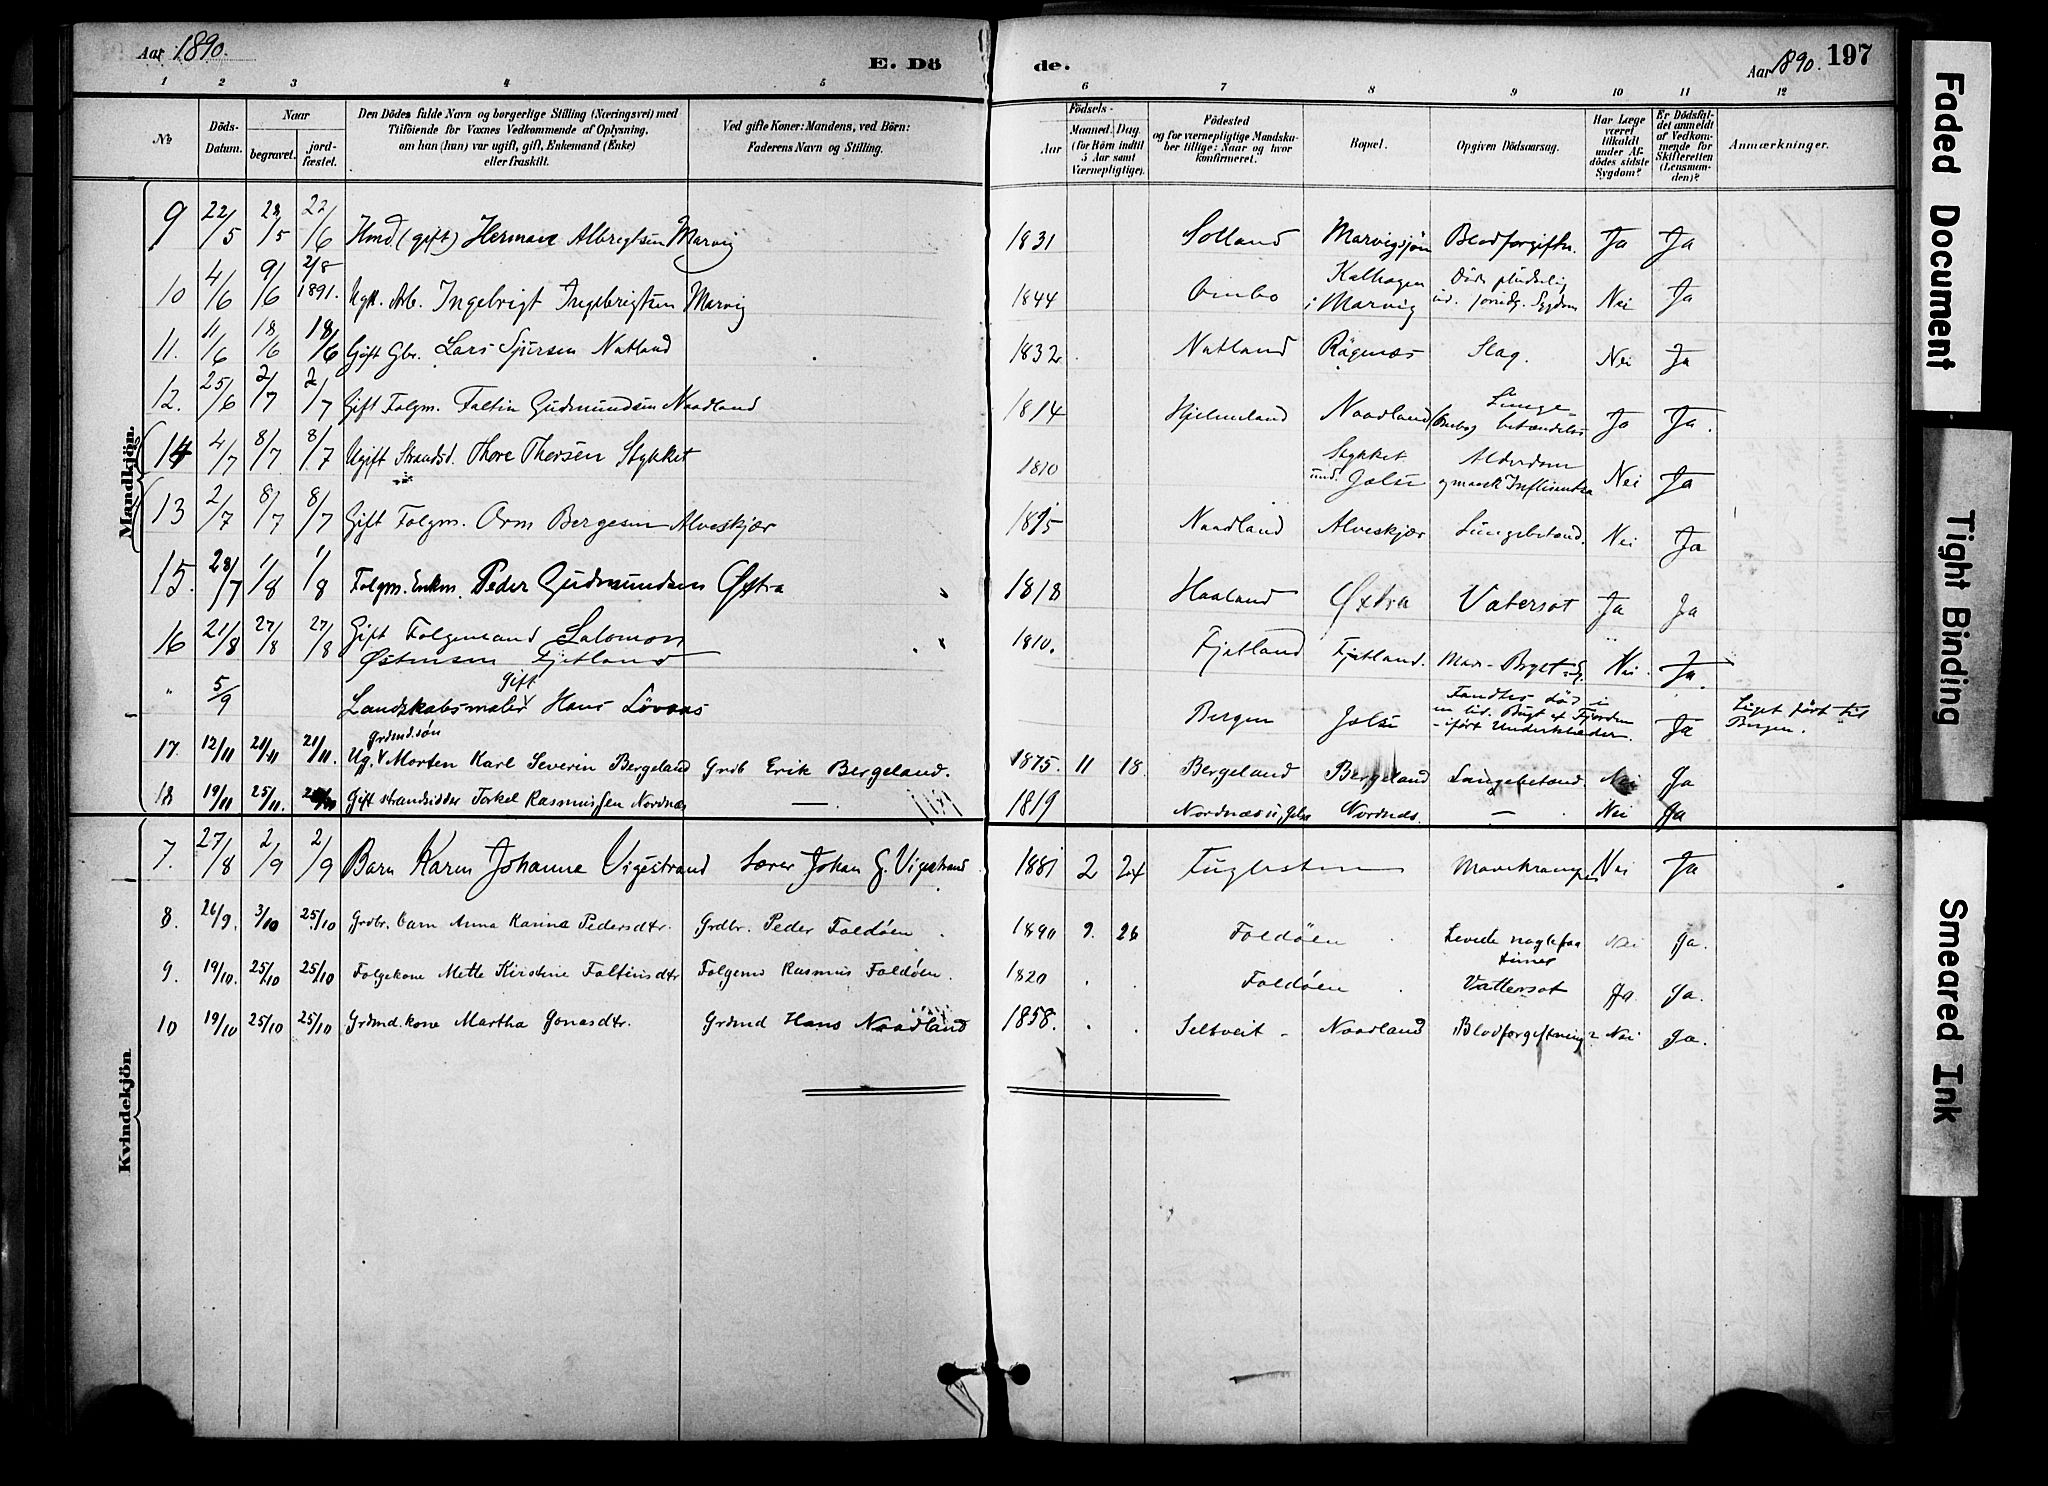 Aar 1890.
E. Dö
de.
Aar 1890.
197
1 2 3 4 5 6 7 8 9 10 11 12
No
Döds-Datum.
Naar
begravet.
jordfæstet.
Den Dödes fulde Navn og borgerlige Stilling (Næringsvei) med
Tilföiende for Voxnes Vedkommende af Oplysning,
om han (hun) var ugift, gift, Enkemand (Enke)
eller fraskilt.
Ved gifte Koner: Mandens, ved Börn:
Faderens Navn og Stilling.
Födsels-
Aar
Maaned. Dag.
(for Börn indtil
5 Aar samt
Værnepligtige).
Födested
og for værnepligtige Mandskaber tillige: Naar og hvor
konfirmeret.
Bopæl.
Opgiven Dödsaarsag.
Har Læge
været
tilkaldt
under Afdödes sidste
Sygdom?
Er Dödsfaldet anmeldt
af Vedkommende for
Skifteretten
(Lensmanden)?
Anmærkninger.
Mandkjön.
9 22/5 28/5 22/6 Hmd (gift) Herman Albregtsen Marvig 1831 Solland Marvigsjøn Blodforgiftn. Ja Ja
10 4/6 9/6 2/8 1891. Ingebrigt Ingebrigtsen Marvig 1844 Ombo Kalhagen i Marvig Døde pludselig Sygdom Nei Ja
11. 11/6 18/6 18/6 Gift Gbr. Lars Sjursen Natland 1832 Natland Rägenæs Slag. Nei Ja
12. 25/6 2/7 2/7 Gift Folgm. Faltin Gudmundsen Naadland 1814 Hjelmeland Naadland (Ombo) Lungebetændelse Ja Ja.
14 4/7 8/7 8/7 Ugift Strands. Thore Thorsen Stykket 1810 Stykket und. Jelse Alderdom og maask Influentza Nei Ja
13 2/7 8/7 8/7 Gift Folgm. Orm Bergesen Alveskjær 1815 Naadland Alveskjær Lungebetænd. Nei Ja
15. 28/7 1/8 1/8 Folgm. Enkm. Peder Gudmundsen Øxtra 1818 Haaland Øxtra Vatersot Ja Ja
16 21/8 27/8 27/8 Gift Folgemand Salomon
Østensen Fjetland 1810. Fjetland Fjetland. Nei Ja.
" 5/9 Gift
Landskabsmaler Hans Lövaas Bergen Jelse Fandtes død i en lid. Bugt af Fjorden - iført Underklæder. Ja Liget ført til Bergen.
17. 12/11 21/11 21/11. Grdmd.søn
Ug. Morten Karl Severin Bergeland Grdb Erik Bergeland. 1875. 11 18. Bergeland Bergeland Lungebetænd. Nei Ja
18 19/11 25/11. Gift strandsidder Torkel Rasmussen Nordnæs — 1819 Nordnæs i Jelse Nordnæs. — Nei Ja
Kvindekjön.
7. 27/8 2/9 2/9 Barn Karen Johanne Vigestrand Lærer Johan G. Vigestrand 1881 2 24 Fuglesteen Mavekrampe Nei Ja
8. 26/9. 3/10 25/10 Grdbr. barn Anna Karina Pedersdtr. Grdbr. Peder Foldöen 1890 9. 26 Foldöen Levede nogle faa timer Nei Ja.
9. 19/10. 25/10 25/10 Folgekone Mette Kirstine Faltinsdtr Folgemd Rasmus Foldöen. 1820 Foldöen Vattersot Ja Ja.
10 19/10 25/10 25/10 Grdmd.kone Martha Jonasdtr. Grdmd Hans Naadland 1858. Seltveit - Naadland Blodforgiftning? Nei Ja.
Faded Document
Tight Binding
Smeared Ink